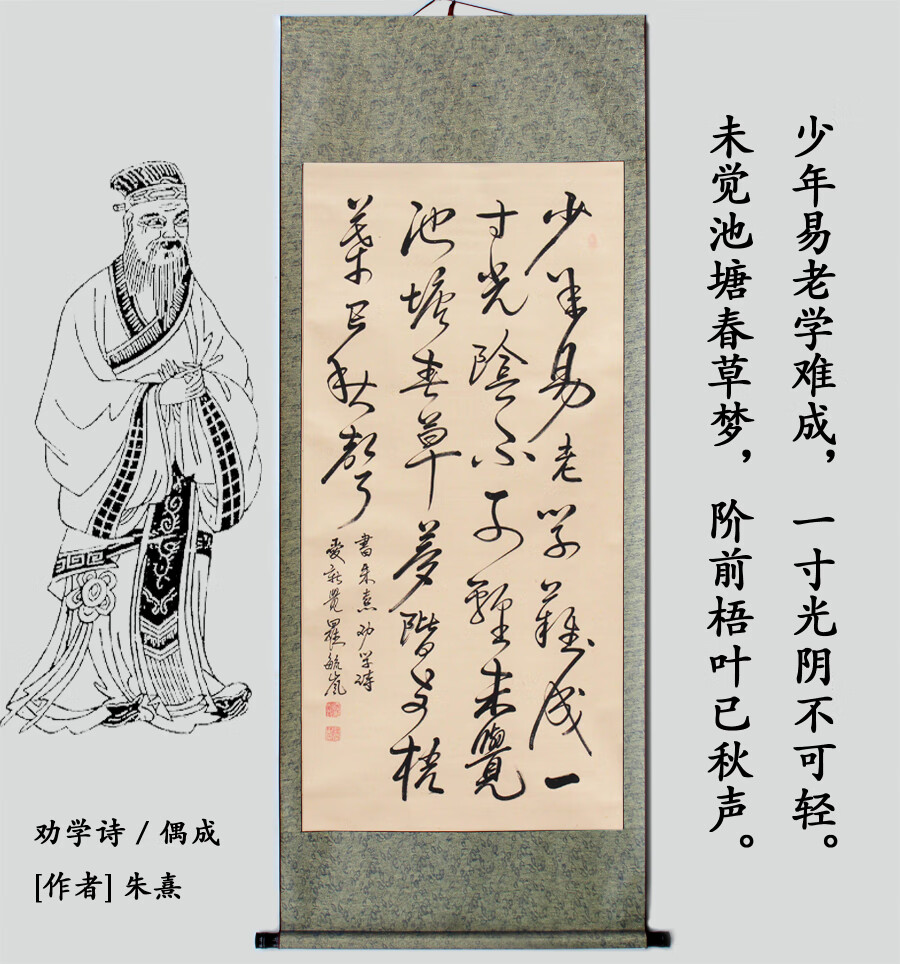 少年易老学难成，一寸光阴不可轻。
未觉池塘春草梦，阶前梧叶已秋声。
少年易老学難成一
寸光陰不可輕未覺
池塘春草夢階前梧
葉已秋聲
書朱熹劝学诗
愛新覺羅毓嵐
劝学诗 / 偶成
[作者] 朱熹